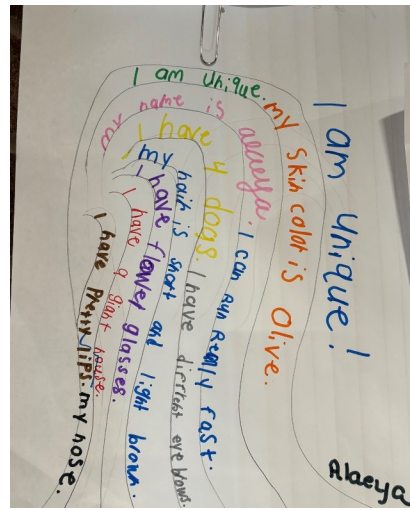 I am Unique!
Alaeya
I am unique. my skin color is Olive.
my name is alaeya. I can run Really fast.
I have 4 dogs. I have diffrent eye blows.
my hair is short and light brown.
I have flower glasses.
I have a giant house.
I have pretty lips. my nose.